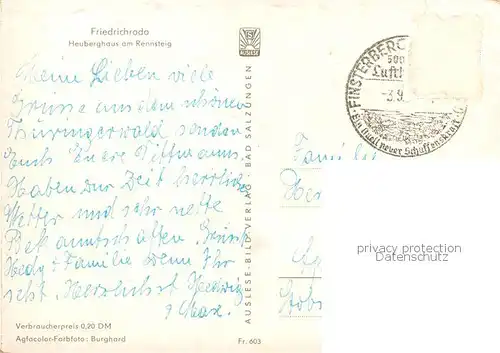 Friedrichroda
Heuberghaus am Rennsteig
Meine Lieben viele
Grüsse aus dem schönen
Thüringerwald senden
Euch Euere Dittmanns
Haben zur Zeit herrliches
Wetter und sehr nette
Bekanntschaften. Grüsst
Hedy + Familie wenn Ihr
seht. Herzlichst Hedwig
+ Max.
Verbraucherpreis 0,20 DM
Agfacolor-Farbfoto: Burghard
Fr. 603
AUSLESE-BILD-VERLAG · BAD SALZUNGEN
FINSTERBERG
500
Luft
-3.9.
Ein Quell neuer Schaffenskraft
Familie
privacy protection
Datenschutz